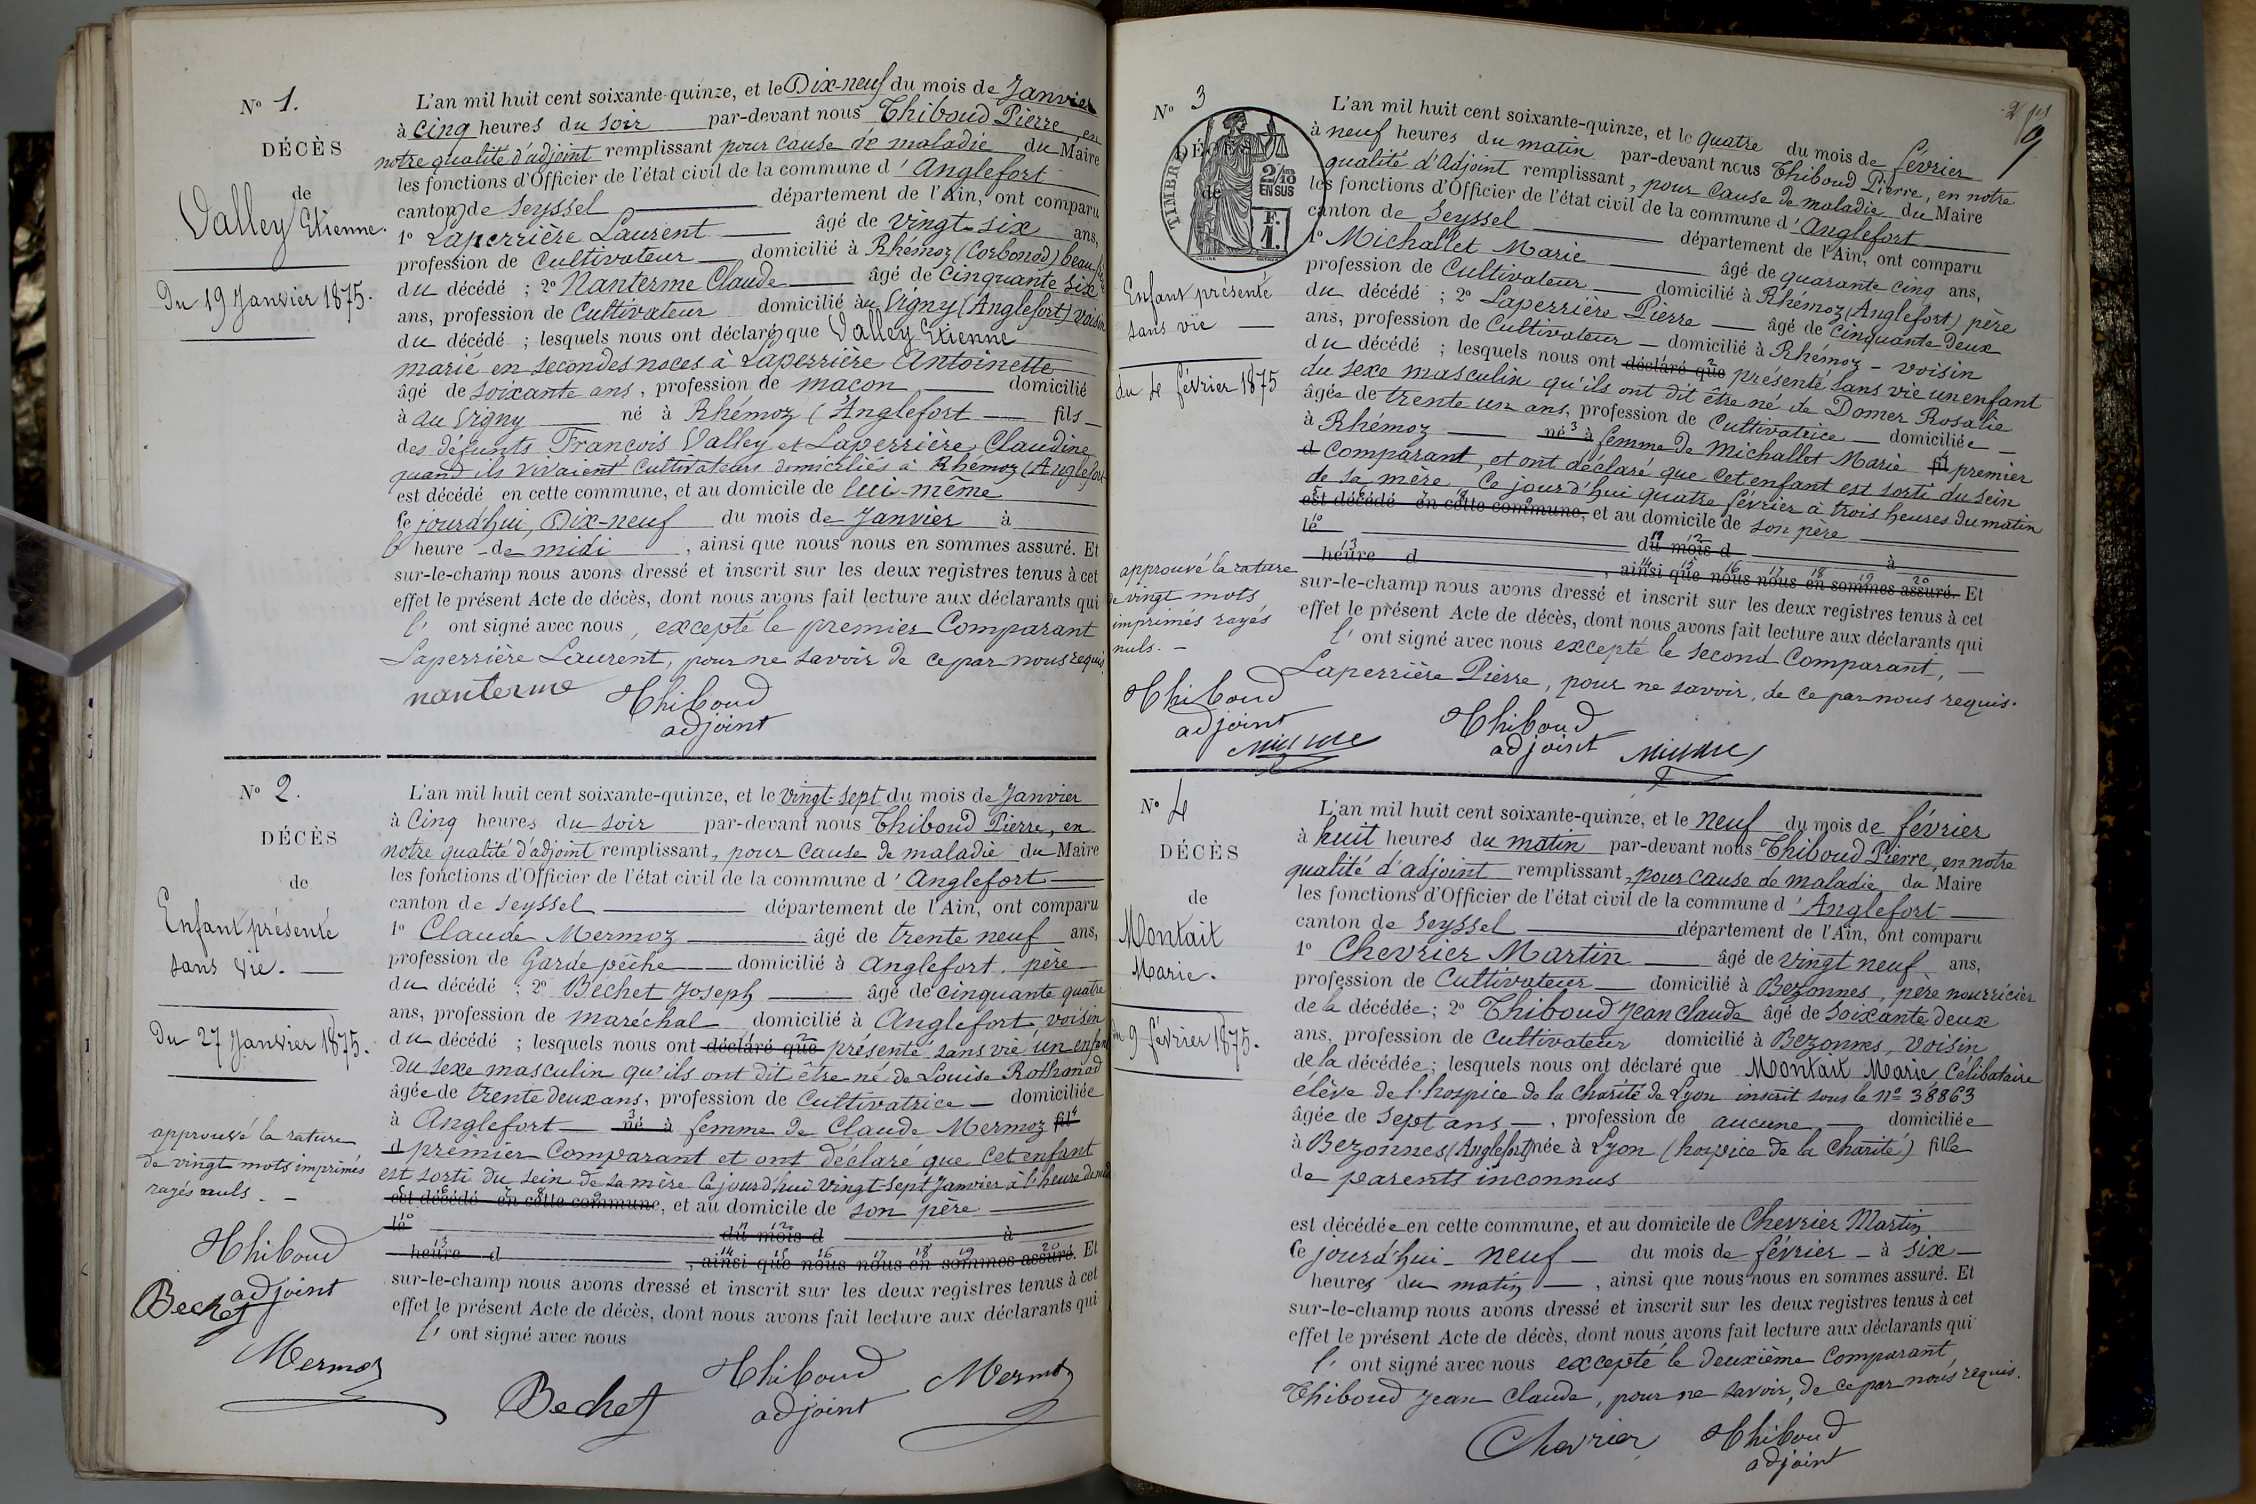 N° 1.
DÉCÈS
de
Valley Etienne.
Du 19 Janvier 1875.
L'an mil huit cent soixante-quinze, et le Dix-neuf du mois de Janvier
à cinq heures du soir par-devant nous Thiboud Pierre, en
notre qualité d'adjoint remplissant pour cause de maladie du Maire
les fonctions d'Officier de l'état civil de la commune d'Anglefort
canton de Seyssel département de l'Ain, ont comparu
1° Laperrière Laurent âgé de vingt-six ans,
profession de Cultivateur domicilié à Rhémoz (Corbonod) beau
du décédé ; 2° Nanterme Claude âgé de cinquante six
ans, profession de Cultivateur domicilié au Vigny (Anglefort) voisin
du décédé ; lesquels nous ont déclaré que Valley Etienne
marié en secondes noces à Laperrière Antoinette
âgé de soixante ans, profession de maçon domicilié
à au Vigny né à Rhémoz (Anglefort fils
des défunts François Valley et Laperrière Claudine
quand ils vivaient Cultivateurs domiciliés à Rhémoz (Anglefort
est décédé en cette commune, et au domicile de lui-même
le jourd'hui, Dix-neuf du mois de Janvier à
l' heure de midi, ainsi que nous nous en sommes assuré. Et
sur-le-champ nous avons dressé et inscrit sur les deux registres tenus à cet
effet le présent Acte de décès, dont nous avons fait lecture aux déclarants qui
l' ont signé avec nous, excepté le premier Comparant
Laperrière Laurent, pour ne savoir de ce par nous requis
nanterme Thiboud
adjoint
N° 2.
DÉCÈS
de
Enfant présenté
sans vie.
Du 27 Janvier 1875.
approuvé la rature
de vingt mots imprimés
rayés nuls. -
Thiboud
adjoint
Bechet
Mermoz
L'an mil huit cent soixante-quinze, et le vingt-sept du mois de Janvier
à Cinq heures du soir par-devant nous Thiboud Pierre, en
notre qualité d'adjoint remplissant, pour cause de maladie du Maire
les fonctions d'Officier de l'état civil de la commune d'Anglefort
canton de Seyssel département de l'Ain, ont comparu
1° Claude Mermoz âgé de trente neuf ans,
profession de Garde pêche domicilié à Anglefort, père
du décédé ; 2° Béchet Joseph âgé de cinquante quatre
ans, profession de maréchal domicilié à Anglefort voisin
du décédé ; lesquels nous ont déclaré que présenté sans vie un enfant
du sexe masculin qu'ils ont dit être né de Louise Rothonod
âgée de trente deux ans, profession de Cultivatrice domiciliée
à Anglefort né à femme de Claude Mermoz fil
d premier Comparant et ont déclaré que cet enfant
est sorti du sein de sa mère ce jourd'hui vingt-sept Janvier à l'heure de midi
est décédé en cette commune, et au domicile de son père
le du mois d à
heure d , ainsi que nous nous en sommes assuré. Et
sur-le-champ nous avons dressé et inscrit sur les deux registres tenus à cet
effet le présent Acte de décès, dont nous avons fait lecture aux déclarants qui
l' ont signé avec nous
Bechet Thiboud Mermoz
adjoint
N° 3
DÉCÈS
de
TIMBRE
2/10
EN SUS
F.
1.
Enfant présenté
sans vie
du 4 février 1875
approuvé la rature
de vingt mots
imprimés rayés
nuls. -
Thiboud
adjoint
L'an mil huit cent soixante-quinze, et le quatre du mois de février
à neuf heures du matin par-devant nous Thiboud Pierre, en notre
qualité d'Adjoint remplissant, pour cause de maladie du Maire
les fonctions d'Officier de l'état civil de la commune d'Anglefort
canton de Seyssel département de l'Ain, ont comparu
1° Michallet Marie âgé de quarante cinq ans,
profession de Cultivateur domicilié à Rhémoz (Anglefort) père
du décédé ; 2° Laperrière Pierre âgé de cinquante deux
ans, profession de Cultivateur domicilié à Rhémoz - voisin
du décédé ; lesquels nous ont déclaré que présenté sans vie un enfant
du sexe masculin qu'ils ont dit être né de Domer Rosalie
âgée de trente un ans, profession de Cultivatrice domiciliée
à Rhémoz né à femme de Michallet Marie fil premier
d Comparant, et ont déclaré que cet enfant est sorti du sein
de sa mère, ce jourd'hui quatre février à trois heures du matin
est décédé en cette commune, et au domicile de son père
le du mois d à
heure d , ainsi que nous nous en sommes assuré. Et
sur-le-champ nous avons dressé et inscrit sur les deux registres tenus à cet
effet le présent Acte de décès, dont nous avons fait lecture aux déclarants qui
l' ont signé avec nous excepté le second Comparant,
Laperrière Pierre, pour ne savoir, de ce par nous requis.
Thiboud
adjoint
N° 4
DÉCÈS
de
Montait
Marie.
du 9 février 1875.
L'an mil huit cent soixante-quinze, et le neuf du mois de février
à huit heures du matin par-devant nous Thiboud Pierre, en notre
qualité d'adjoint remplissant, pour cause de maladie, du Maire
les fonctions d'Officier de l'état civil de la commune d'Anglefort
canton de Seyssel département de l'Ain, ont comparu
1° Chevrier Martin âgé de vingt neuf ans,
profession de Cultivateur domicilié à Bezonnes, père nourricier
de la décédée ; 2° Thiboud Jean claude âgé de soixante deux
ans, profession de Cultivateur domicilié à Bezonnes, voisin
de la décédée ; lesquels nous ont déclaré que Montait Marie, Célibataire
élève de l'hospice de la charité de Lyon inscrit sous le n° 38863
âgée de Sept ans, profession de aucune domiciliée
à Bezonnes (Anglefort) née à Lyon (hospice de la Charité) fille
de parents inconnus
est décédée en cette commune, et au domicile de Chevrier Martin
le jourd'hui neuf du mois de février à six
heures du matin, ainsi que nous nous en sommes assuré. Et
sur-le-champ nous avons dressé et inscrit sur les deux registres tenus à cet
effet le présent Acte de décès, dont nous avons fait lecture aux déclarants qui
l' ont signé avec nous excepté le deuxième Comparant
Thiboud Jean Claude, pour ne savoir, de ce par nous requis.
Chevrier Thiboud
adjoint